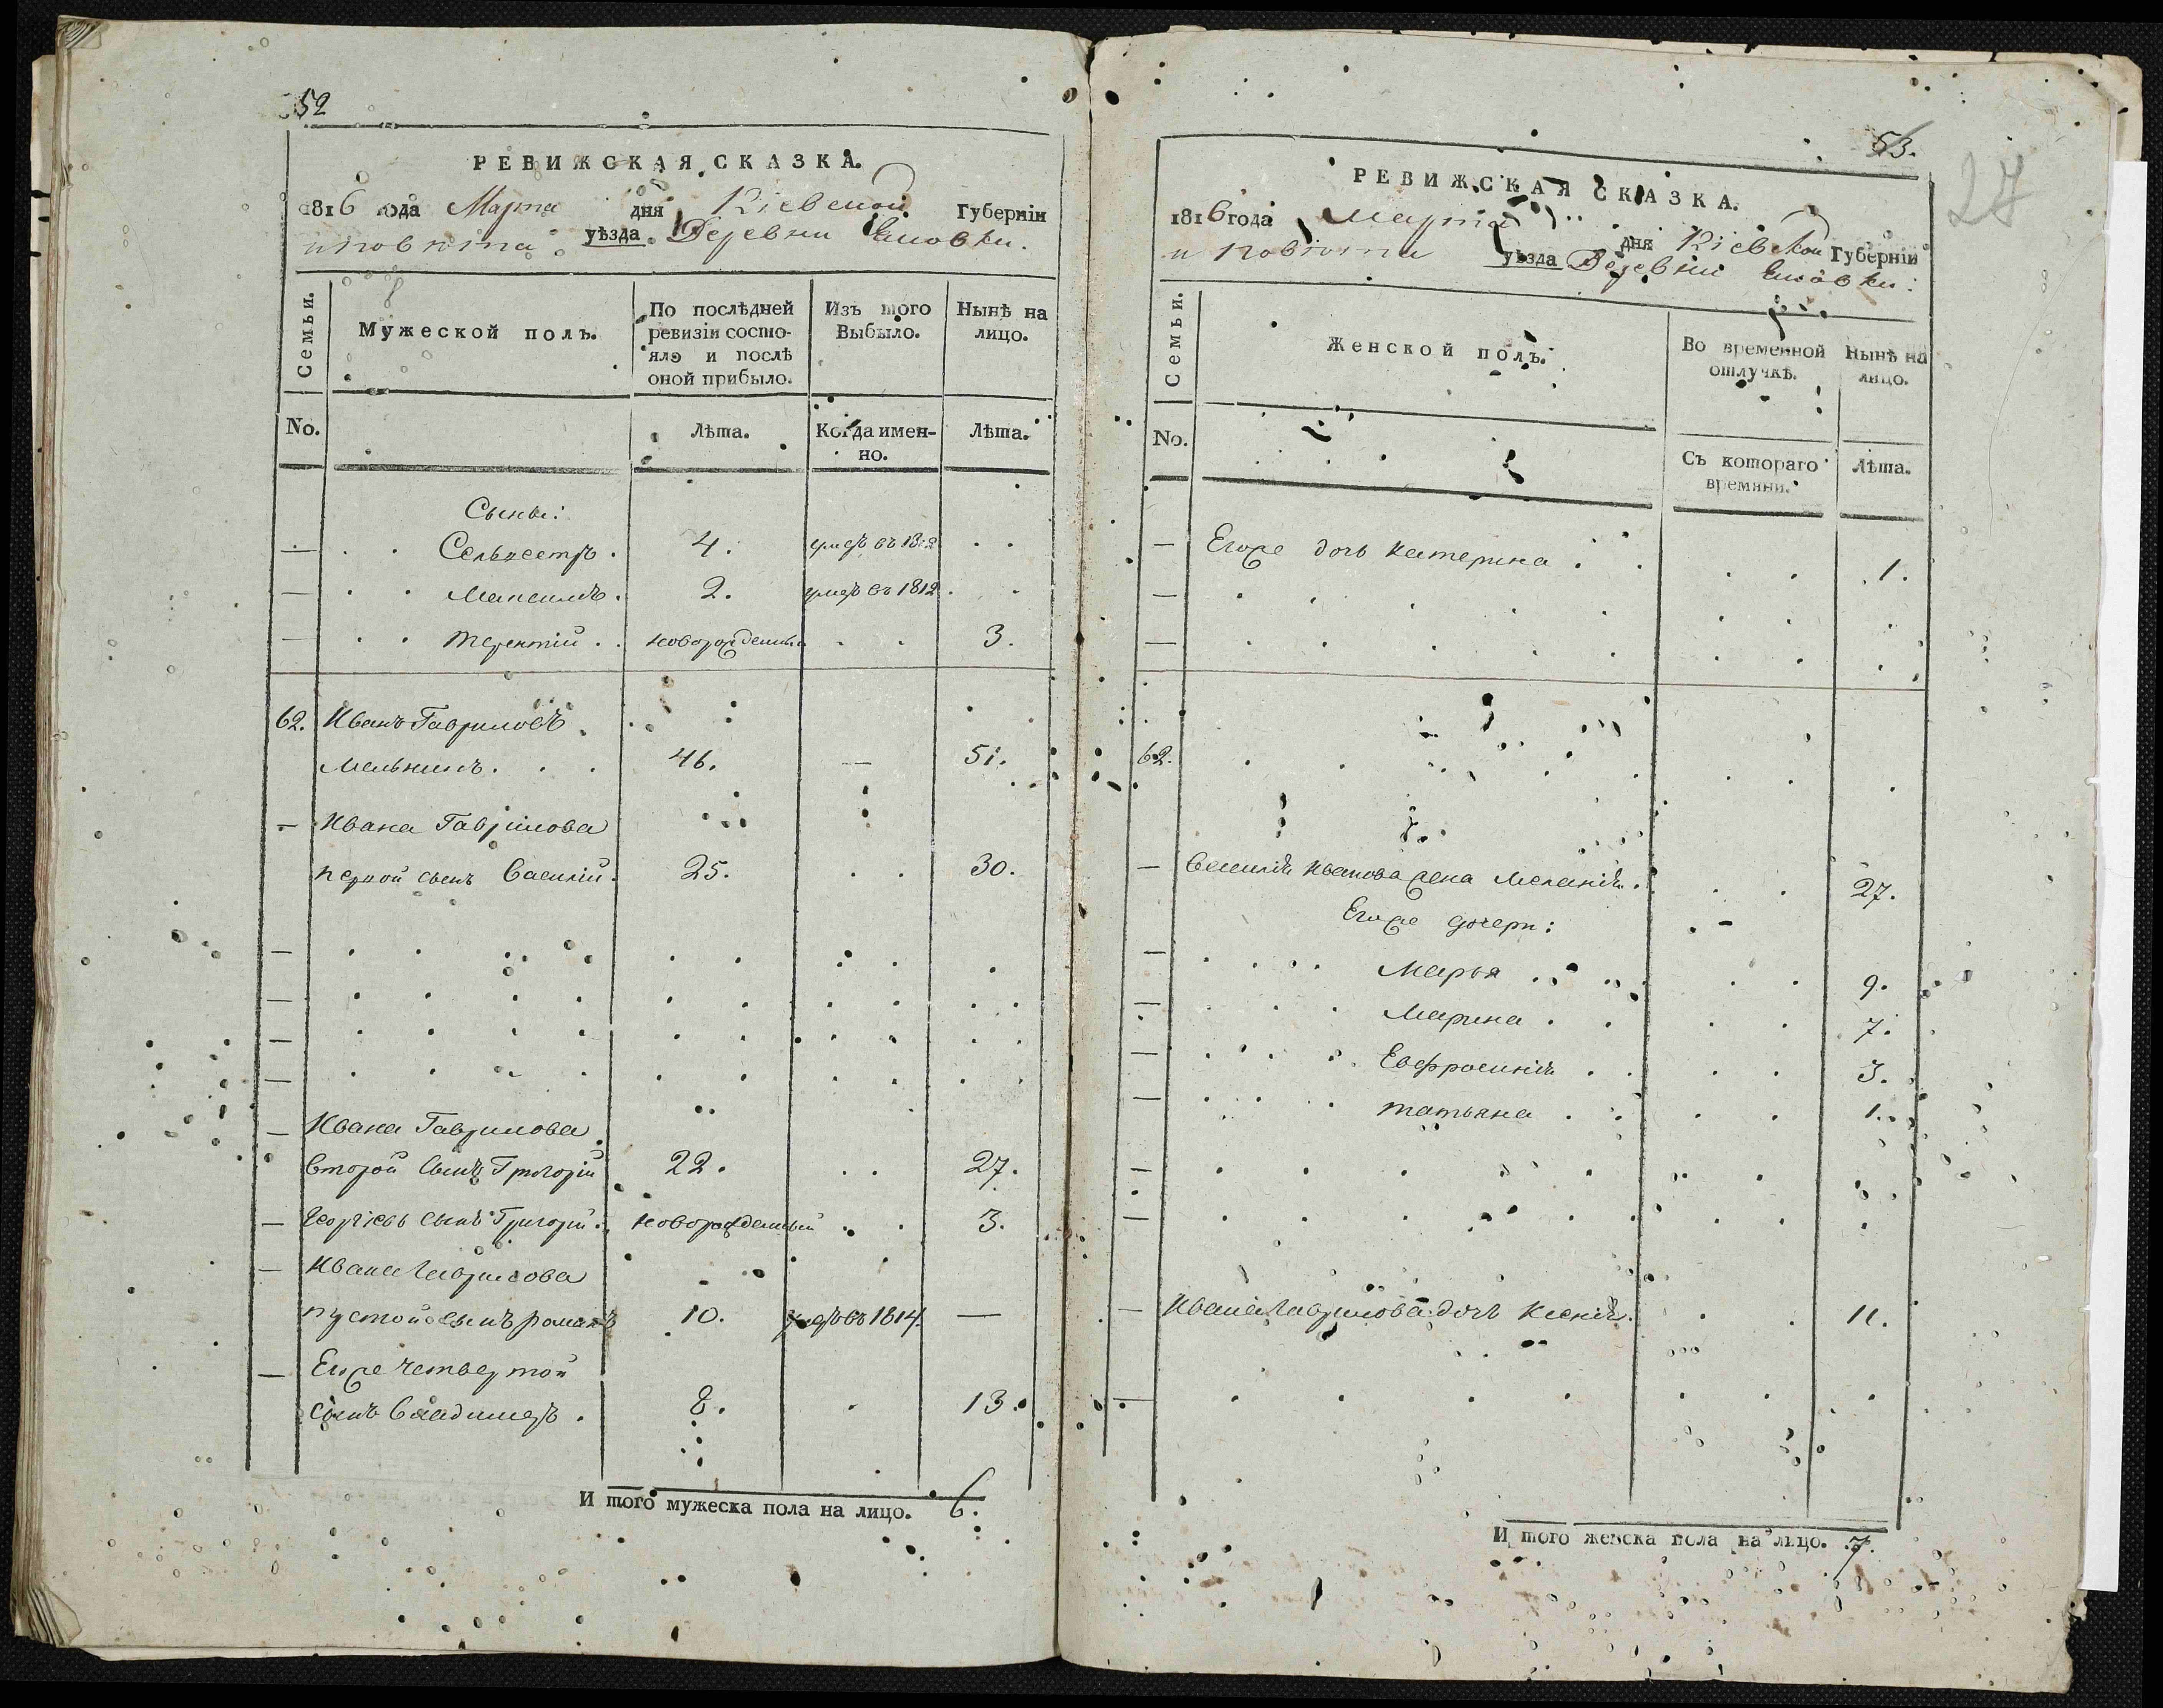 52
РЕВИЖСКАЯ СКАЗКА.
1816 года Марта дня Кіевской Губерніи
и повѣта уѣзда Деревни
Семьи.
Мужеской полъ.
По послѣдней ревизіи состояло и послѣ оной прибыло.
Изъ того Выбыло.
Нынѣ на лицо.
No.
Лѣта.
Когда именно.
Лѣта.
Сыны:
— Сельвестръ. 4. умеръ въ 1812
— Максимъ. 2. умеръ въ 1812
— Терентій новорожденный 3.
62. Иванъ Гавриловъ
Мельникъ. 46. — 51.
— Ивана Гаврилова
первой сынъ Василій. 25. 30.
—
—
—
—
— Ивана Гаврилова
второй сынъ Григорій 22. 27.
— Георгіевъ сынъ Григорій новорожденный 3.
— Ивана Гаврилова
сынъ романъ 10. умеръ въ 1814. —
— Егоже четвертой
сынъ Владимеръ. 8. 13.
И того мужеска пола на лицо. 6.
53.
27
РЕВИЖСКАЯ СКАЗКА.
1816 года Марта дня Кіевской Губерніи
и повѣта уѣзда Деревни
Семьи.
Женской полъ.
Во временной отлучкѣ.
Нынѣ на лицо.
No.
Съ котораго времяни.
Лѣта.
— Егоже дочь катерина 1.
—
—
62.
— Василія Иванова жена Меланія. 27.
Егоже дочери:
— Марья 9.
— Марина 7.
— Евфросинія 3.
— татьяна 1.
—
—
— Ивана Гаврилова дочь Ксенія. 11.
—
И того женска пола на лицо. 7.